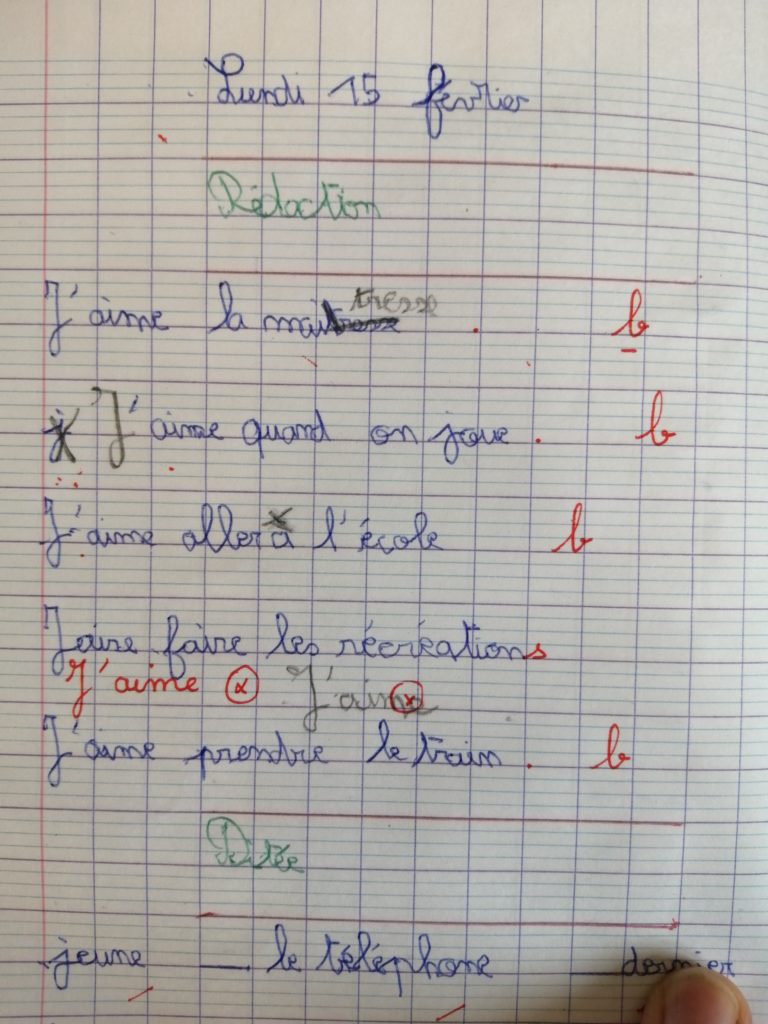 Lundi 15 février
Rédaction
tresse
J'aime la mai . b
J'aime quand on joue . b
J'aime aller à l'école b
Jaire faire les récréations
J'aime J'aime
J'aime prendre le train . b
Dictée
jeune — le téléphone — dernier